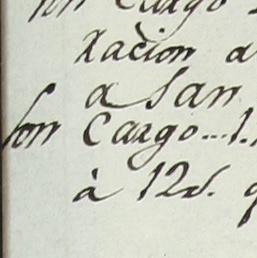 Son Cargo
xacion a
a San
Son Cargo... 1.
à 12 s. q